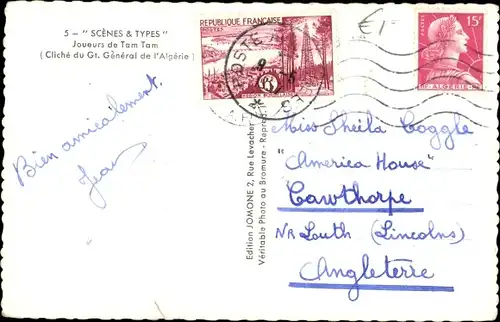 5 – " SCÈNES & TYPES "
Joueurs de Tam Tam
( Cliché du Gt. Général de l'Algérie )
Bien amicalement.
Jean
RÉPUBLIQUE FRANÇAISE
POSTES
POSTE
15F
POSTES
ALGÉRIE
Edition JOMONE 2, Rue Levacher
Véritable Photo au Bromure - Repro
Miss Sheila Coggle
"America House"
Cawthorpe
NR Louth (Lincolns)
Angleterre